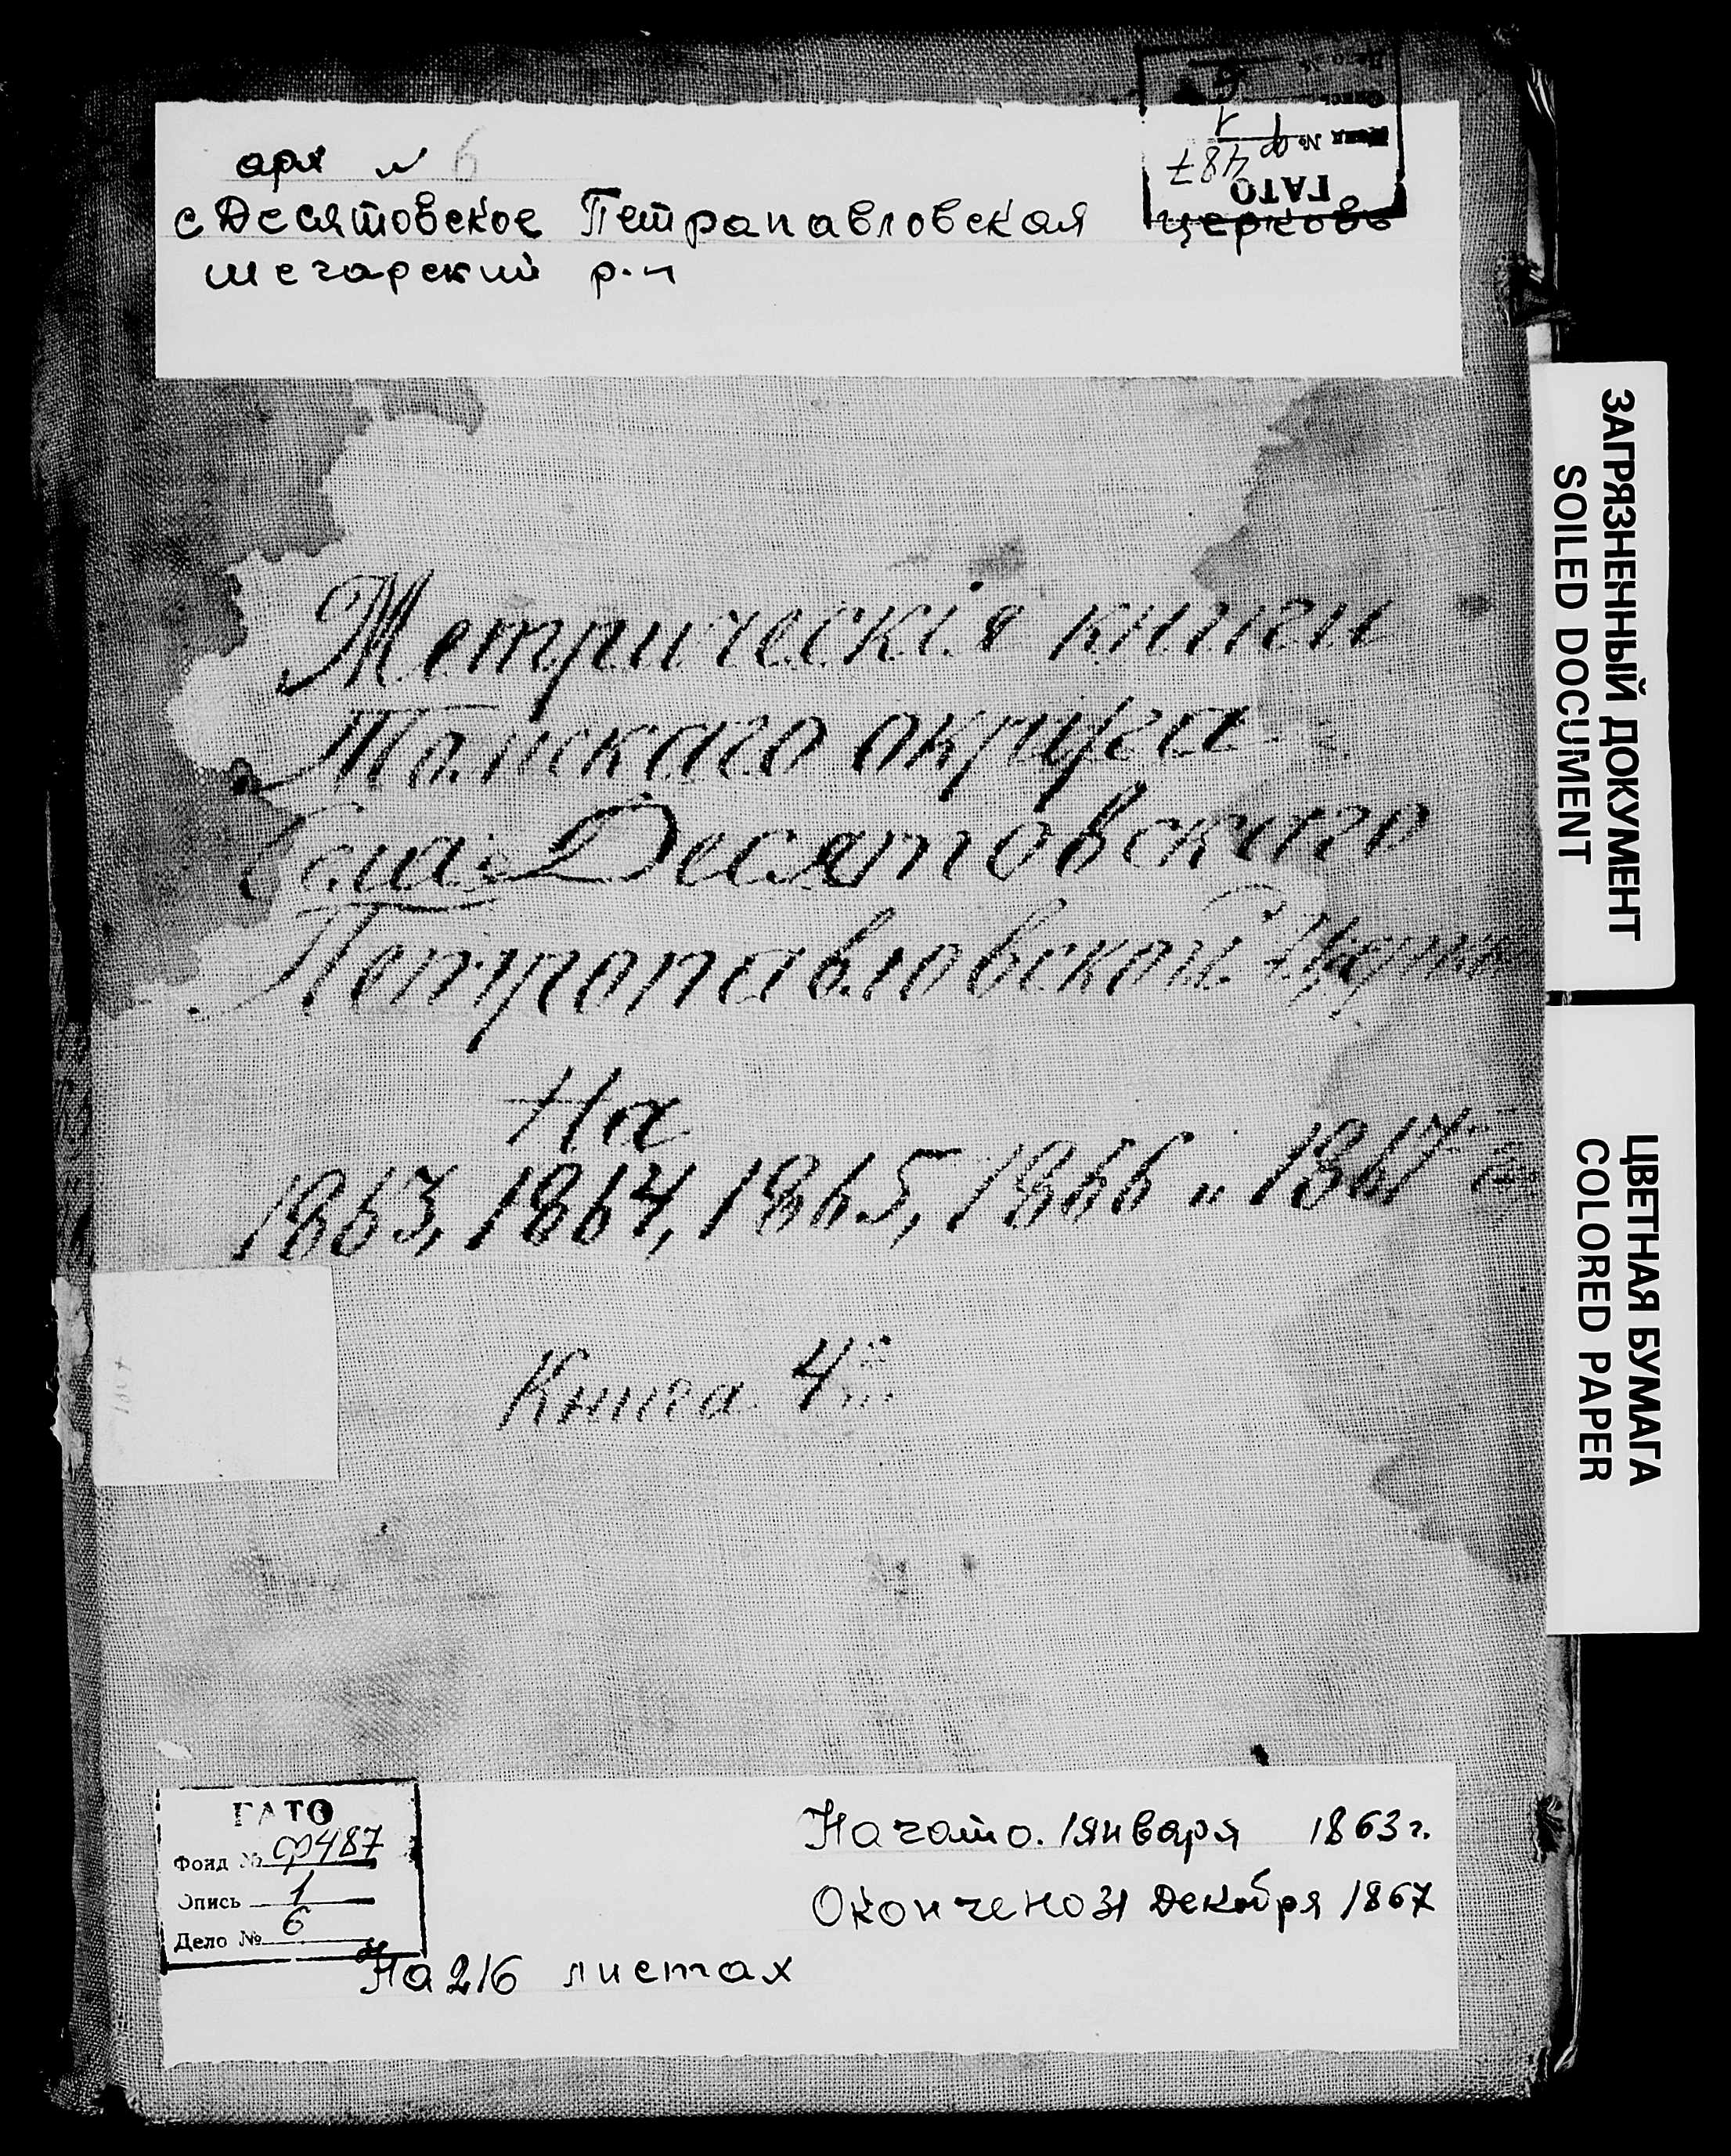 арх № 6
с Десятовское Петрапавловская церковь
шегарский р-н
ГАТО
Фонд № ф487
1
Метрическія книги
Томскаго округа
Села Десятовскаго
Петропавловской Церкви
На
1863, 1864, 1865, 1866 и 1867
Книга 4
ГАТО
Фонд № ф487
Опись 1
Дело № 6
Начато. 1 января 1863 г.
Окончено 31 Декабря 1867
На 216 листах
ЗАГРЯЗНЕННЫЙ ДОКУМЕНТ
SOILED DOCUMENT
ЦВЕТНАЯ БУМАГА
COLORED PAPER